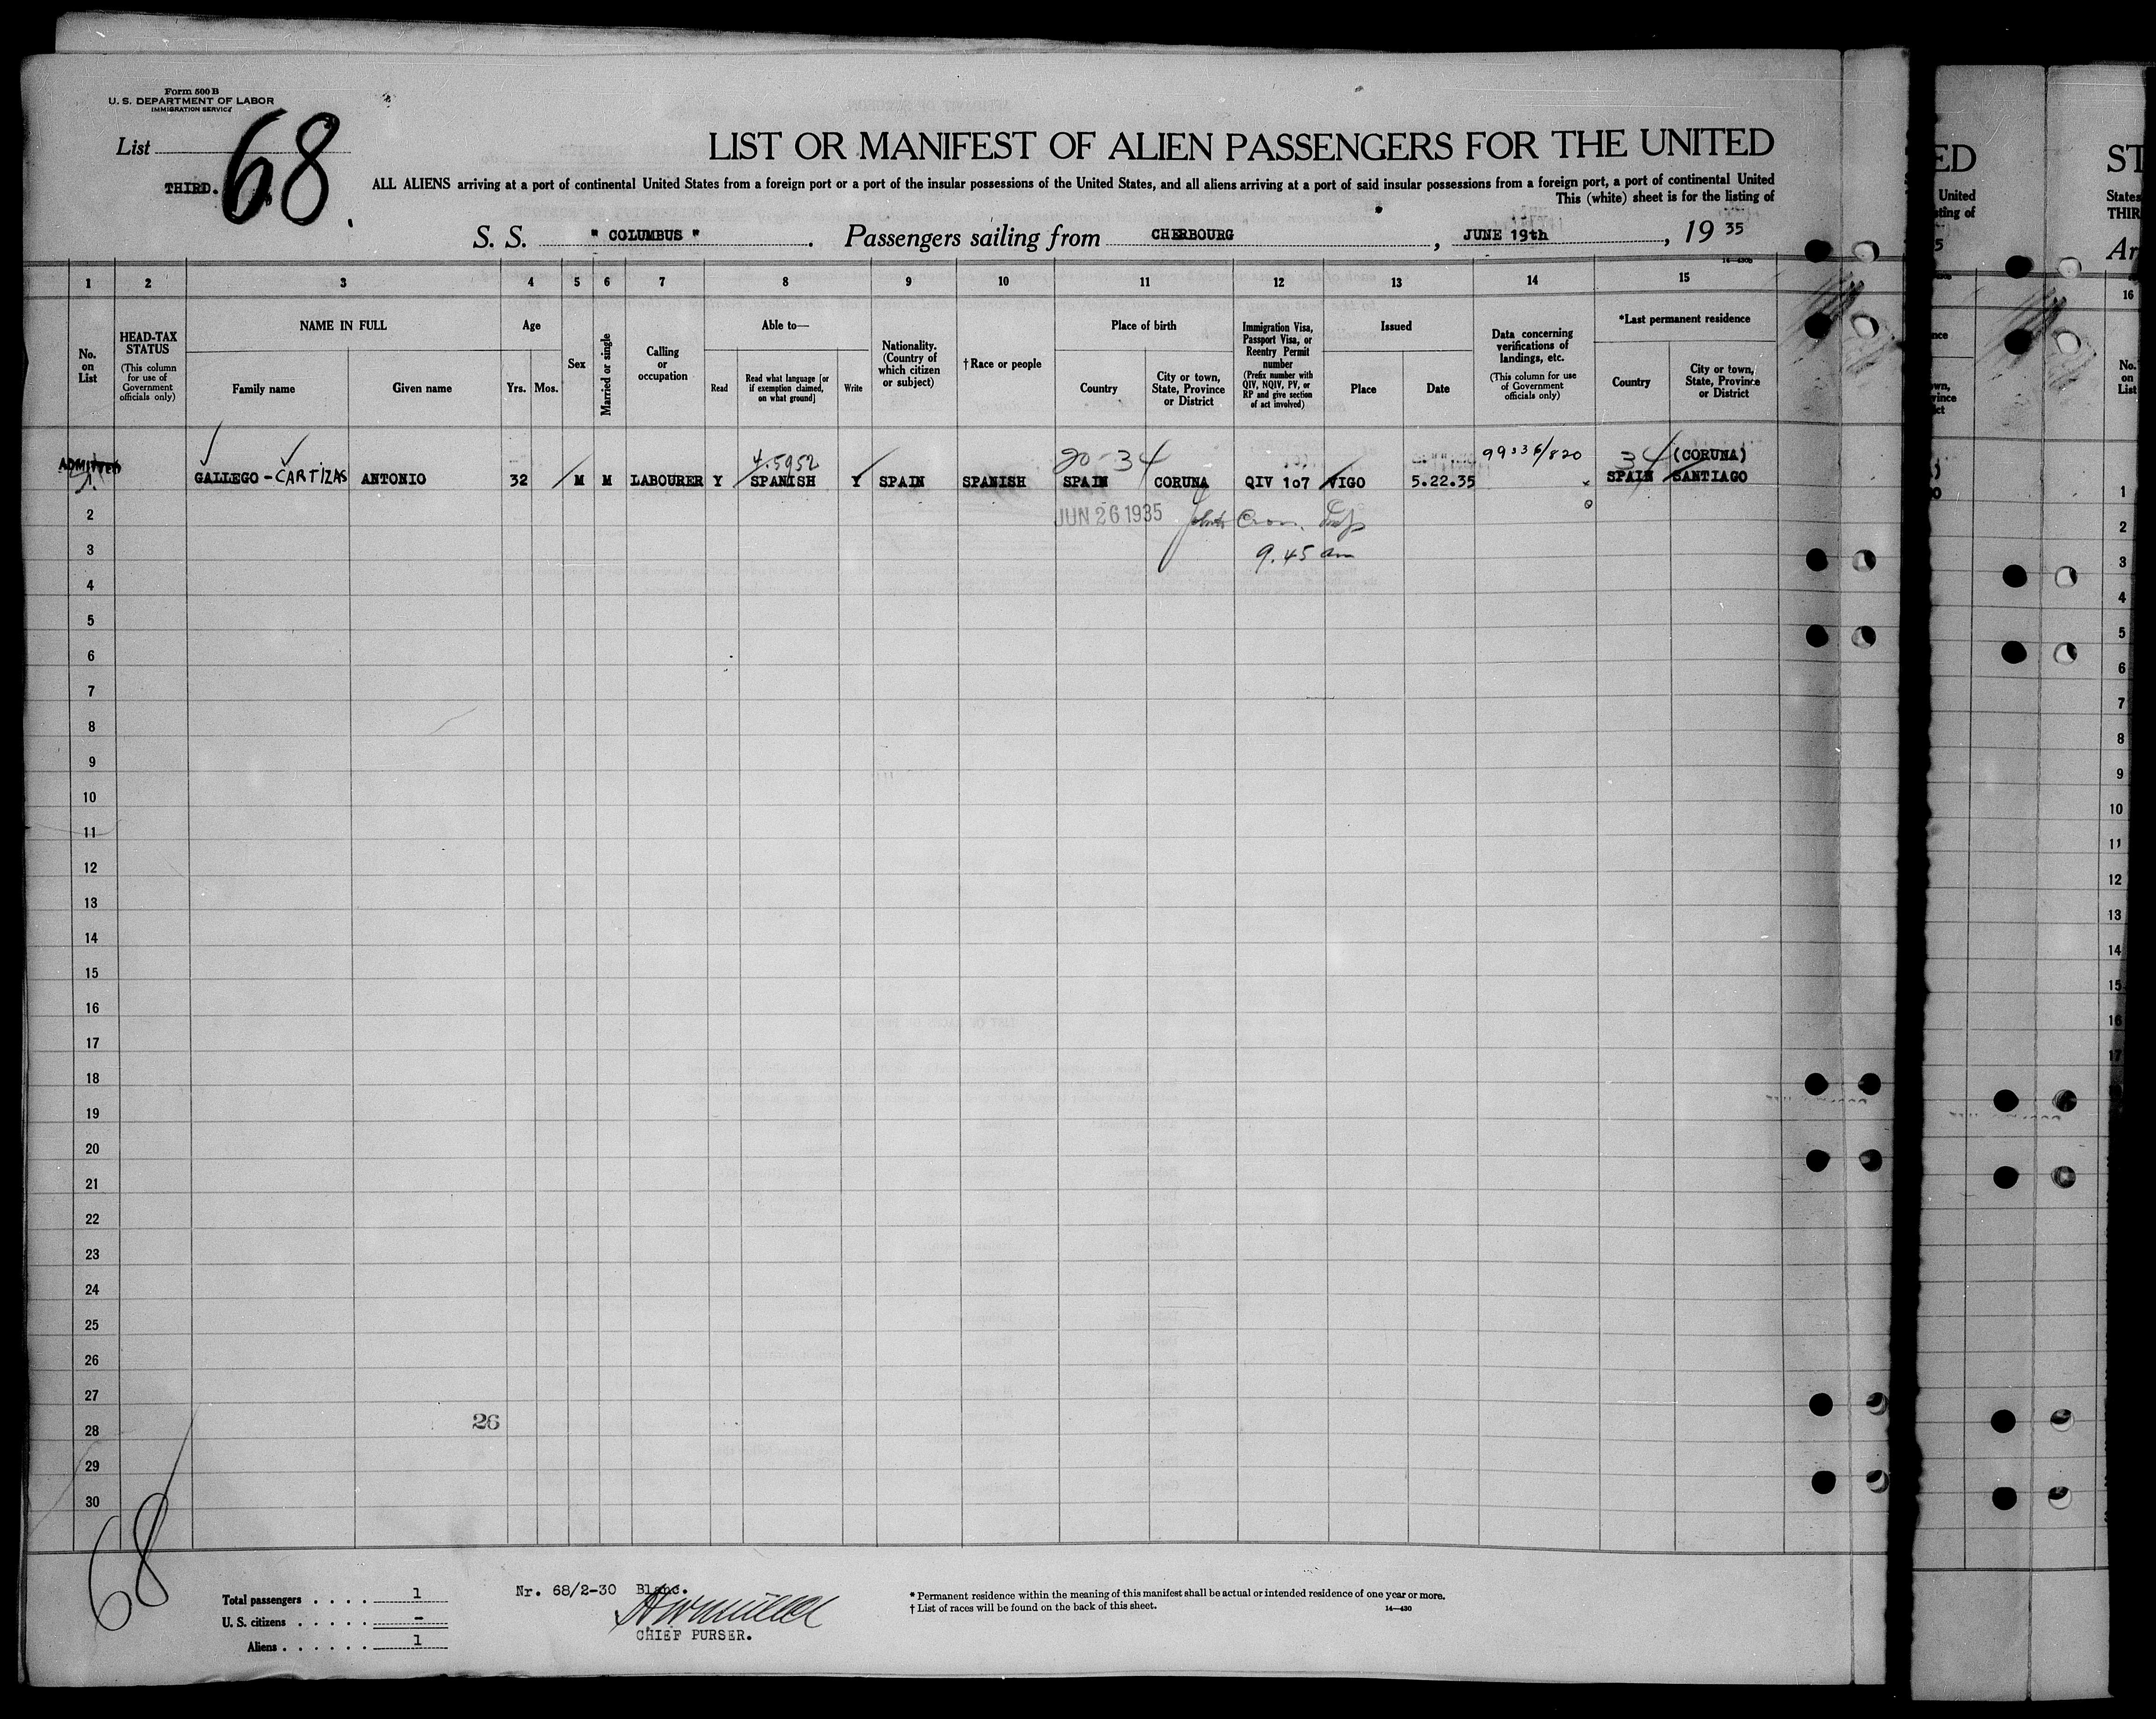 Form 500 B
U. S. DEPARTMENT OF LABOR
IMMIGRATION SERVICE
List 68
THIRD.
LIST OR MANIFEST OF ALIEN PASSENGERS FOR THE UNITED
ALL ALIENS arriving at a port of continental United States from a foreign port or a port of the insular possessions of the United States, and all aliens arriving at a port of said insular possessions from a foreign port, a port of continental United
This (white) sheet is for the listing of
S. S. " COLUMBUS ". Passengers sailing from CHERBOURG, JUNE 19th, 19 35
1 2 3 4 5 6 7 8 9 10 11 12 13 14 15
No. on List
HEAD-TAX STATUS
(This column for use of Government officials only)
NAME IN FULL
Family name
Given name
Age
Yrs. Mos.
Sex
Married or single
Calling or occupation
Able to—
Read
Read what language [or if exemption claimed, on what ground]
Write
Nationality. (Country of which citizen or subject)
† Race or people
Place of birth
Country
City or town, State, Province or District
Immigration Visa, Passport Visa, or Reentry Permit number
(Prefix number with QIV, NQIV, PV, or RP and give section of act involved)
Issued
Place
Date
Data concerning verifications of landings, etc.
(This column for use of Government officials only)
*Last permanent residence
Country
City or town, State, Province or District
ADMITTED 4.5952 20-34 99336/820 34 (CORUNA)
GALLEGO - CARTIZAS ANTONIO 32 M M LABOURER Y SPANISH Y SPAIN SPANISH SPAIN CORUNA QIV 107 VIGO 5.22.35 SPAIN SANTIAGO
2 JUN 26 1935
3 9.45 am
4
5
6
7
8
9
10
11
12
13
14
15
16
17
18
19
20
21
22
23
24
25
26
27
28 26
29
30
68
Total passengers . . . . 1
U. S. citizens . . . . . . –
Aliens . . . . . . 1
Nr. 68/2-30 Blanc.
CHIEF PURSER.
* Permanent residence within the meaning of this manifest shall be actual or intended residence of one year or more.
† List of races will be found on the back of this sheet.
14—430
ED
United
sting of
5
ST
States
THIR
Ar
16
No. on List
1
2
3
4
5
6
7
8
9
10
11
12
13
14
15
16
17